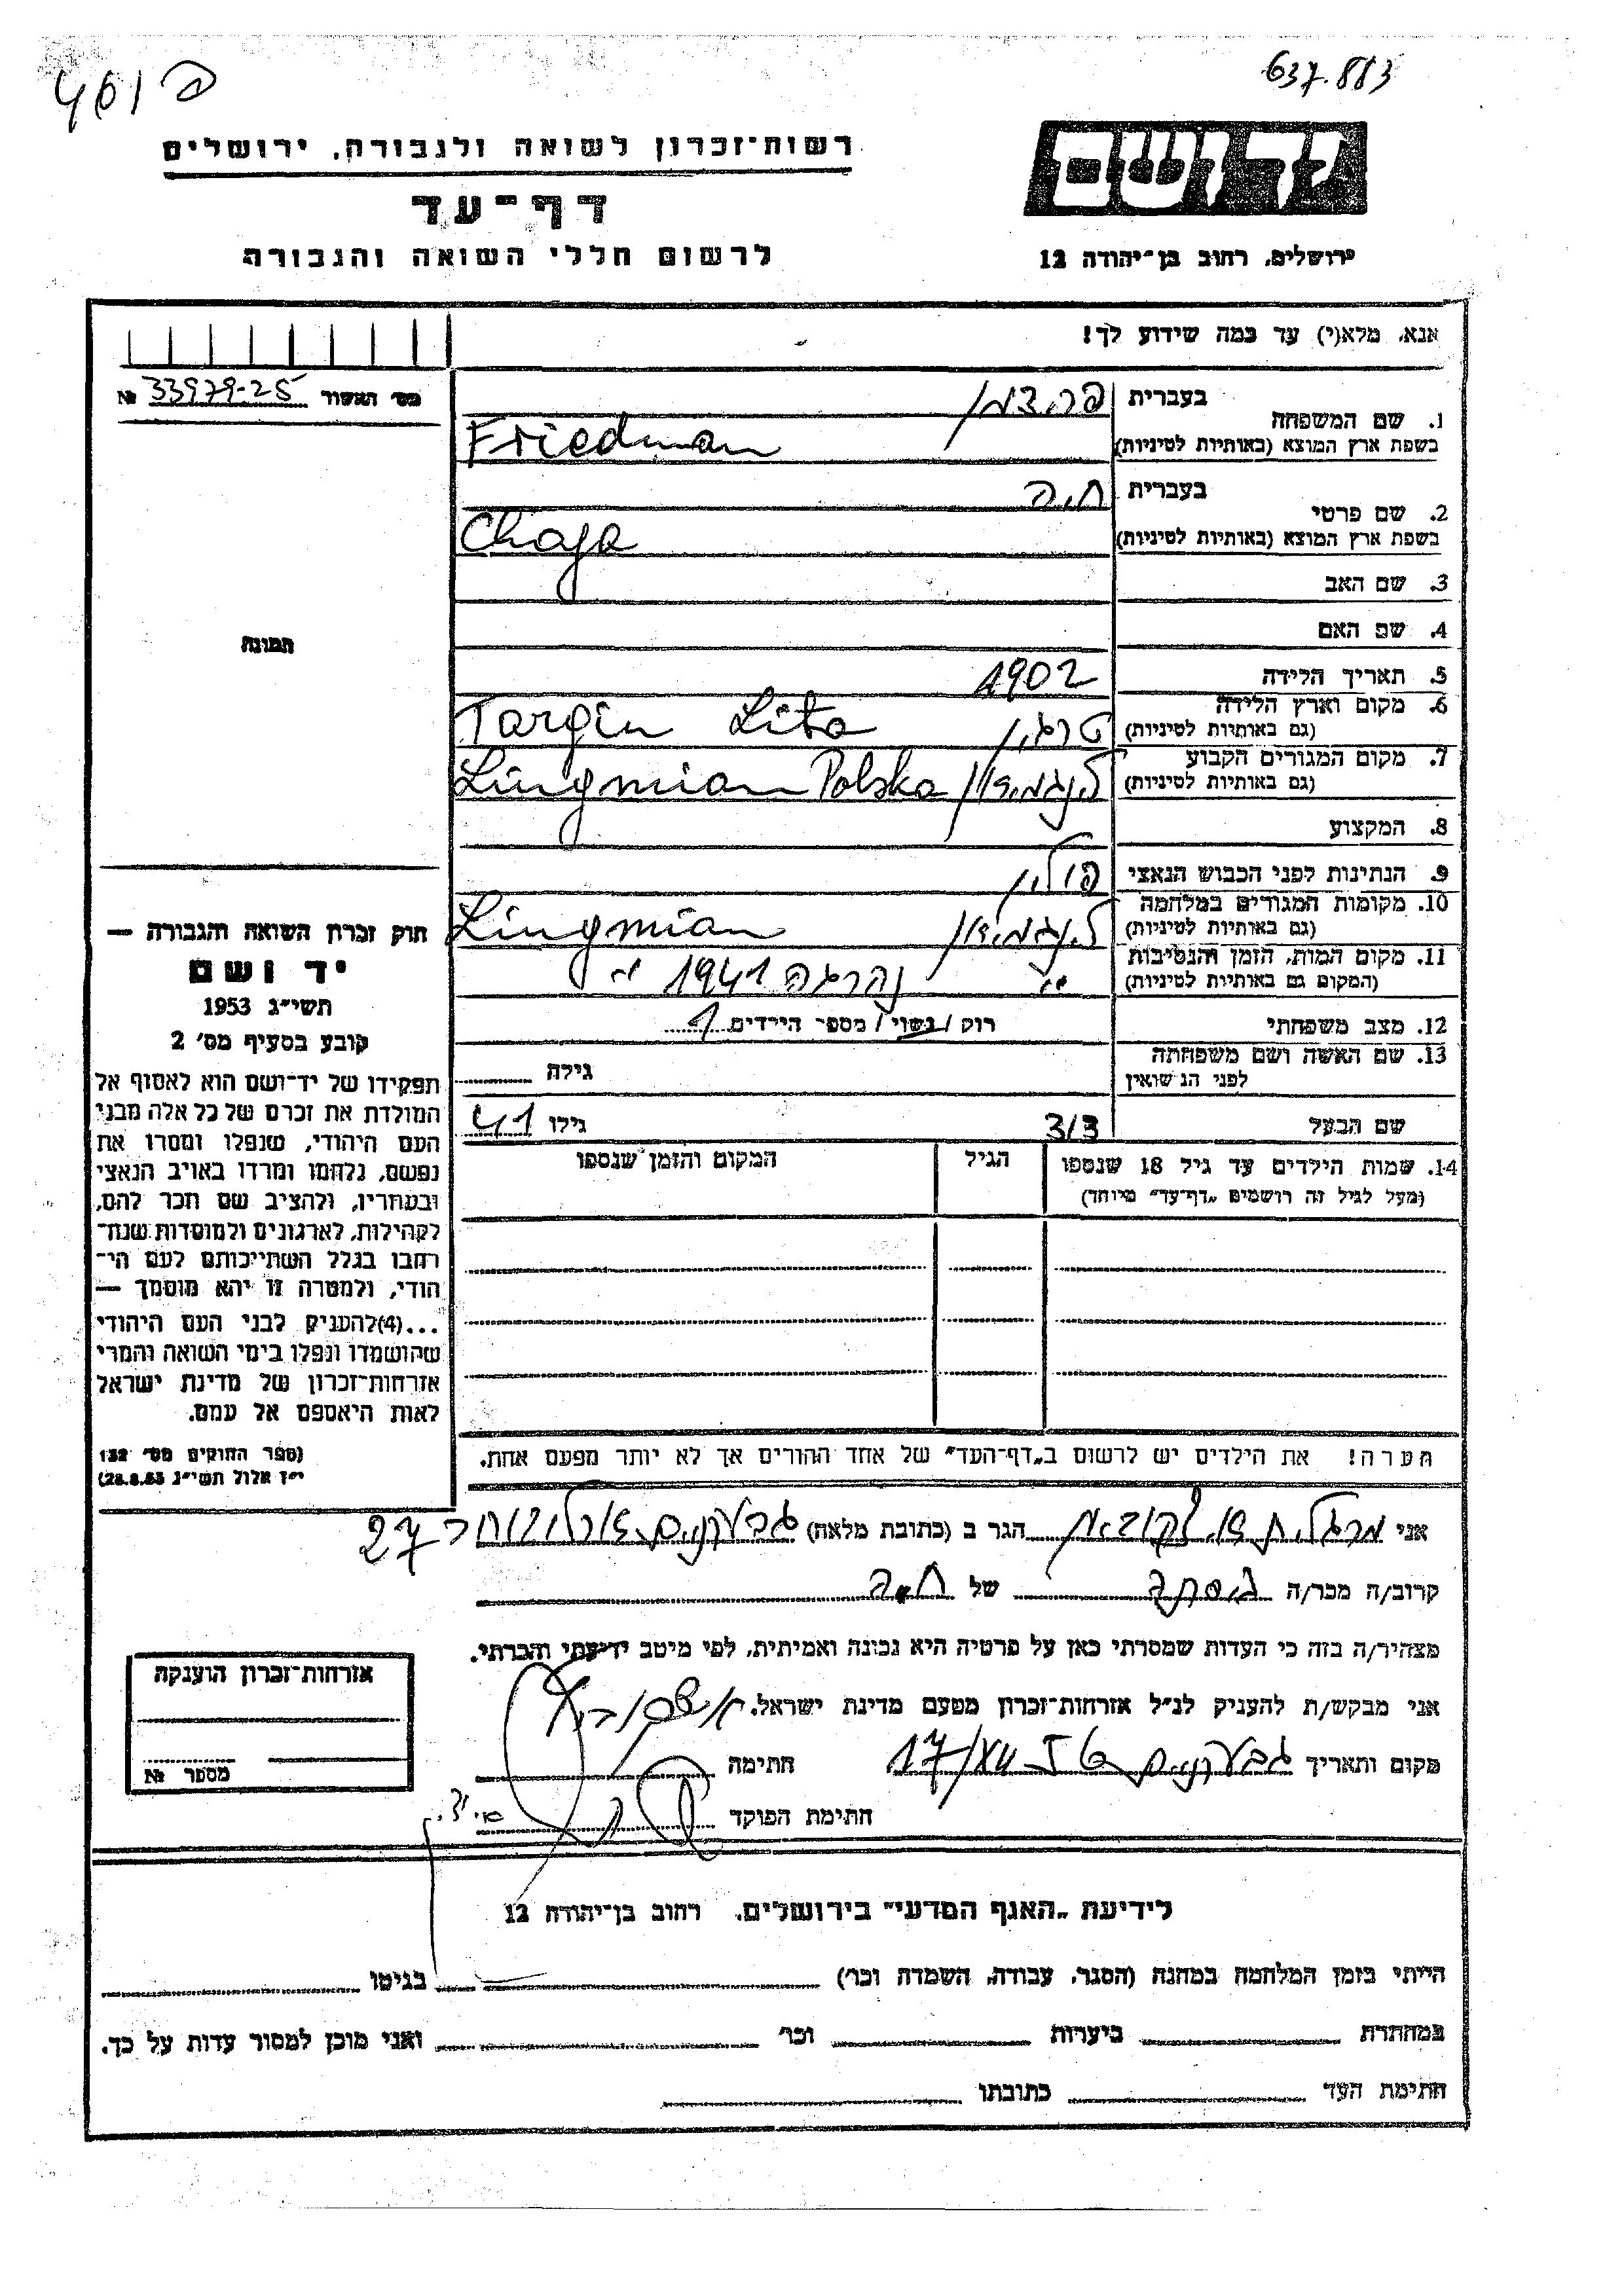 461 פ
637.883
ידושם
ירושלים, רחוב בן־יהודה 12
רשות־זכרון לשואה ולגבורה, ירושלים
דף־עד
לרשום חללי השואה והגבורה
אנא, מלא(י) עד כמה שידוע לך!
מס׳ האשור № 33979-25
1. שם המשפחה
בעברית פרידמן
בשפת ארץ המוצא (באותיות לטיניות) Friedman
2. שם פרטי
בעברית חיה
בשפת ארץ המוצא (באותיות לטיניות) Chaja
3. שם האב
4. שם האם
5. תאריך הלידה 1902
6. מקום וארץ הלידה
(גם באותיות לטיניות) טרגין Targin Lita
7. מקום המגורים הקבוע
(גם באותיות לטיניות) Lingmian Polska
8. המקצוע
9. הנתינות לפני הכבוש הנאצי פולין
10. מקומות המגורים במלחמה
(גם באותיות לטיניות) Lingmian
11. מקום המות, הזמן והנסיבות
(המקום גם באותיות לטיניות) נהרגה 1941
12. מצב משפחתי רוק / נשוי / מספר הילדים 1
13. שם האשה ושם משפחתה
לפני הנשואין גילה
שם הבעל דוד גילו 41
14. שמות הילדים עד גיל 18 שנספו הגיל המקום והזמן שנספו
(מעל לגיל זה רושמים „דף־עד״ מיוחד)
הערה! את הילדים יש לרשום ב„דף־העד״ של אחד ההורים אך לא יותר מפעם אחת.
תמונה
חוק זכרון השואה והגבורה —
יד ושם
תשי״ג 1953
קובע בסעיף מס׳ 2
תפקידו של יד־ושם הוא לאסוף אל
המולדת את זכרם של כל אלה מבני
העם היהודי, שנפלו ומסרו את
נפשם, נלחמו ומרדו באויב הנאצי
ובעוזריו, ולהציב שם וזכר להם,
לקהילות, לארגונים ולמוסדות שנח־
רבו בגלל השתייכותם לעם הי־
הודי, ולמטרה זו יהא מוסמך —
...(4)להעניק לבני העם היהודי
שהושמדו ונפלו בימי השואה והמרי
אזרחות־זכרון של מדינת ישראל
לאות היאספם אל עמם.
(ספר החוקים מס׳ 132
י״ז אלול תשי״ג 28.8.53)
אני מרגלית הגר ב (כתובת מלאה) גבעתיים 27
קרוב/ה מכר/ה גיסתה של חיה
מצהיר/ה בזה כי העדות שמסרתי כאן על פרטיה היא נכונה ואמיתית, לפי מיטב ידיעתי והכרתי.
אני מבקש/ת להעניק לנ״ל אזרחות־זכרון מטעם מדינת ישראל.
מקום ותאריך גבעתיים חתימה
חתימת הפוקד
אזרחות־זכרון הוענקה
מספר №
לידיעת „האגף המדעי״ בירושלים, רחוב בן־יהודה 12
הייתי בזמן המלחמה במחנה (הסגר, עבודה, השמדה וכר׳) בגיטו
במחתרת ביערות וכר׳ ואני מוכן למסור עדות על כך.
חתימת העד כתובתו